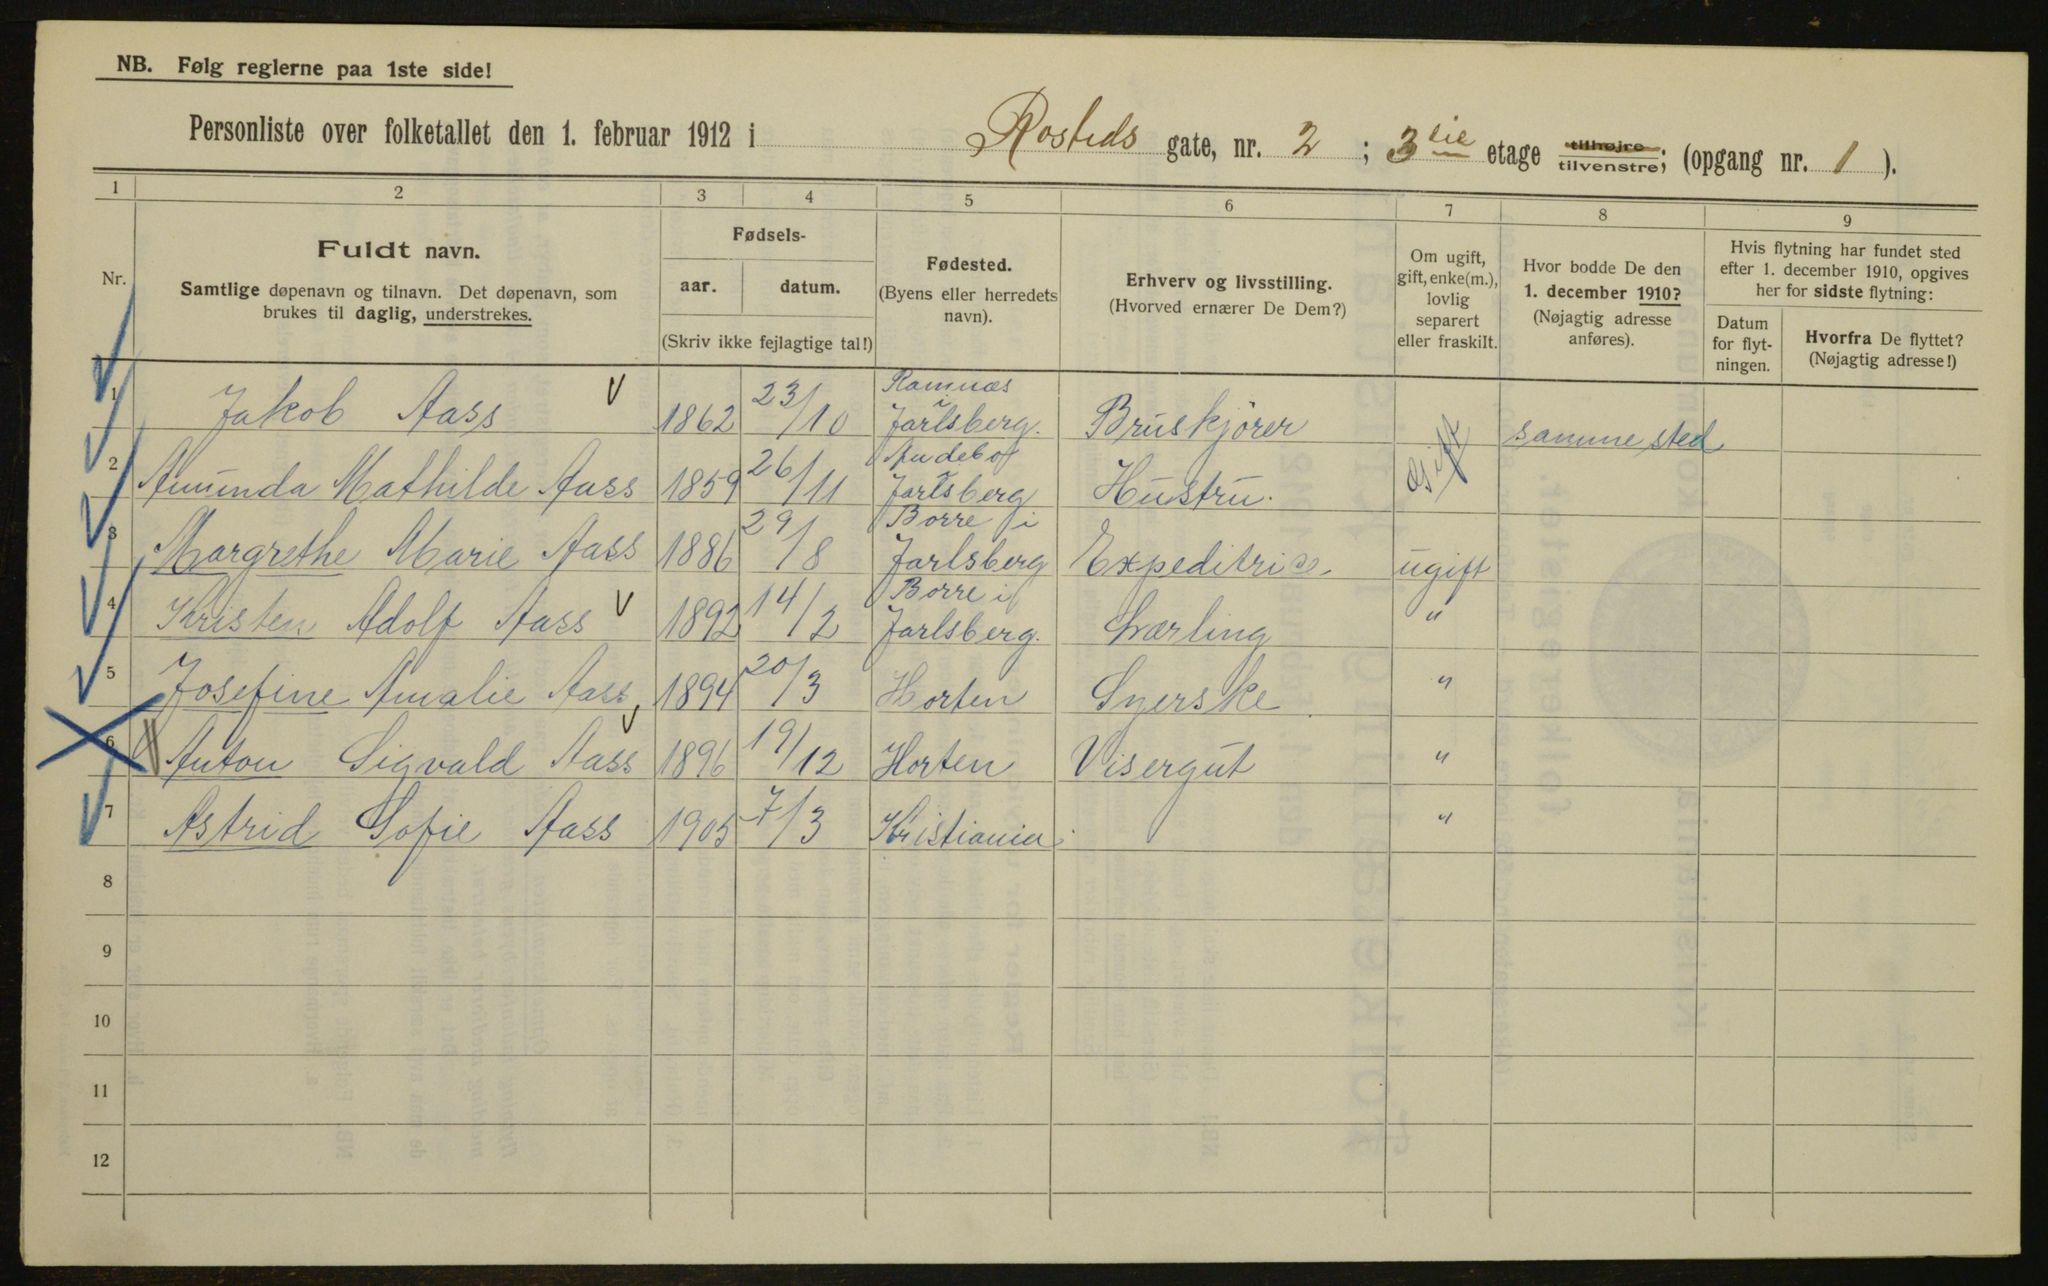 NB. Følg reglerne paa 1ste side!
Personliste over folketallet den 1. februar 1912 i Rosteds gate, nr. 2 ; 3die etage tilhøjre tilvenstre; (opgang nr. 1 ).
1 2 3 4 5 6 7 8 9
Nr.
Fuldt navn.
Samtlige døpenavn og tilnavn. Det døpenavn, som
brukes til daglig, understrekes.
Fødsels-
aar. datum.
(Skriv ikke fejlagtige tal!)
Fødested.
(Byens eller herredets
navn).
Erhverv og livsstilling.
(Hvorved ernærer De Dem?)
Om ugift,
gift, enke(m.),
lovlig
separert
eller fraskilt.
Hvor bodde De den
1. december 1910?
(Nøjagtig adresse
anføres).
Hvis flytning har fundet sted
efter 1. december 1910, opgives
her for sidste flytning:
Datum
for flyt-
ningen.
Hvorfra De flyttet?
(Nøjagtig adresse!)
1 Jakob Aass 1862 23/10 Ramnæs i Jarlsberg. Bruskjörer Gift samme sted
2 Amunda Mathilde Aass 1859 26/11 Andebo i Jarlsberg Hustru.
3 Margrethe Marie Aass 1886 29/8 Borre i Jarlsberg Expeditrice ugift
4 Kristen Adolf Aass 1892 14/2 Borre i Jarlsberg. Lærling "
5 Josefine Amalie Aass 1894 20/3 Horten Syerske "
6 Anton Sigvald Aass 1896 19/12 Horten Visergut "
7 Astrid Sofie Aass 1905 7/3 Kristiania. "
8
9
10
11
12